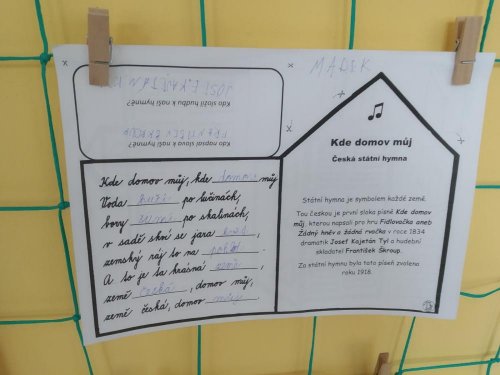 MAREK
Kdo napsal slova k naší hymně?
FRANTIŠEK ŠKROUP
Kdo složil hudbu k naší hymně?
KAJETÁN
Kde domov můj, kde domov můj
Voda hučí po lučinách,
bory šumí po skalinách,
v sadě skví se jara květ,
zemský ráj to na pohled.
A to je ta krásná země,
země česká, domov můj,
země česká, domov můj.
Kde domov můj
Česká státní hymna
Státní hymna je symbolem každé země.
Tou českou je první sloka písně Kde domov
můj, kterou napsali pro hru Fidlovačka aneb
Žádný hněv a žádná rvačka v roce 1834
dramatik Josef Kajetán Tyl a hudební
skladatel František Škroup.
Za státní hymnu byla tato píseň zvolena
roku 1918.